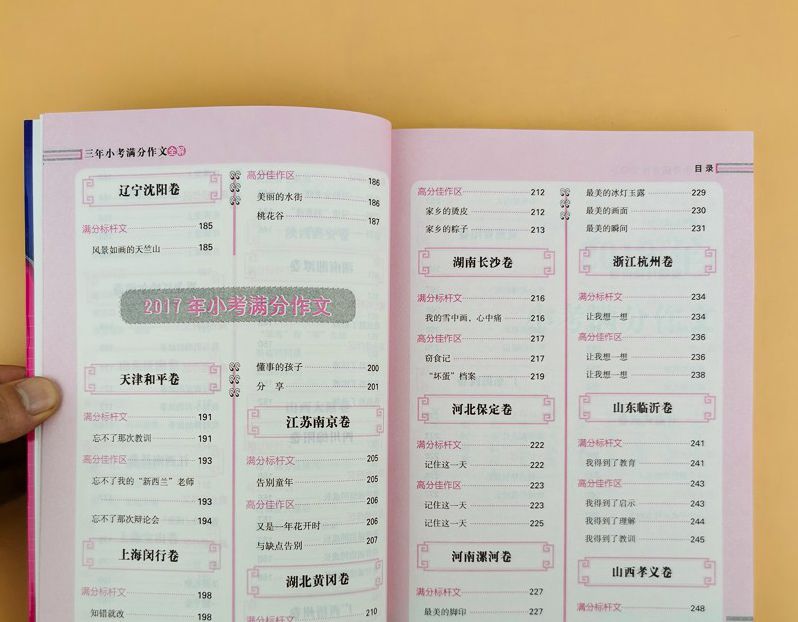 三年小考满分作文全解
辽宁沈阳卷
满分标杆文 185
风景如画的天竺山 185
高分佳作区 186
美丽的水街 186
桃花谷 187
2017年小考满分作文
天津和平卷
满分标杆文 191
忘不了那次教训 191
高分佳作区 193
忘不了我的“新西兰”老师
193
忘不了那次辩论会 194
上海闵行卷
满分标杆文 198
知错就改 198
懂事的孩子 200
分 享 201
江苏南京卷
满分标杆文 205
告别童年 205
高分佳作区 206
又是一年花开时 206
与缺点告别 207
湖北黄冈卷
满分标杆文 210
目录
高分佳作区 212
家乡的烫皮 212
家乡的粽子 213
湖南长沙卷
满分标杆文 216
我的雪中画，心中痛 216
高分佳作区 217
窃食记 217
“坏蛋”档案 219
河北保定卷
满分标杆文 222
记住这一天 222
高分佳作区 223
记住这一天 223
记住这一天 225
河南漯河卷
满分标杆文 227
最美的脚印 227
最美的冰灯玉露 229
最美的画面 230
最美的瞬间 231
浙江杭州卷
满分标杆文 234
让我想一想 234
高分佳作区 236
让我想一想 236
让我想一想 238
山东临沂卷
满分标杆文 241
我得到了教育 241
高分佳作区 243
我得到了启示 243
我得到了理解 244
我得到了教训 245
山西孝义卷
满分标杆文 248